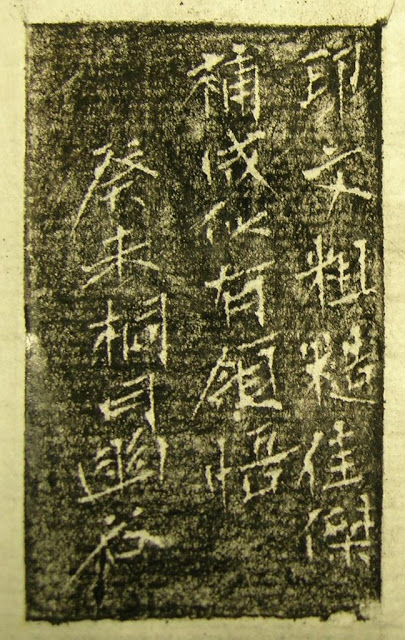 印文粗糙佳傑
補成似有領悟
癸未桐月谷